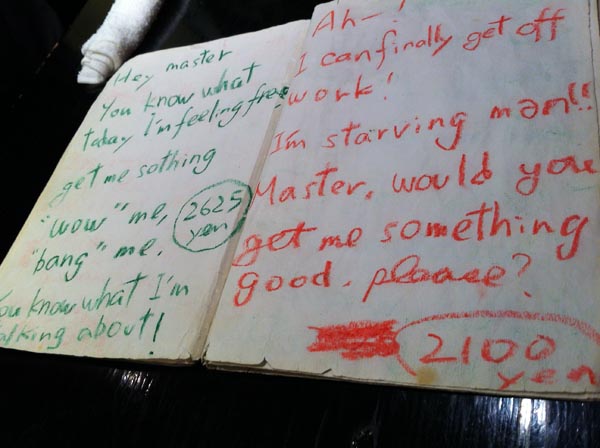 Hey master
You know what
today I'm feeling free
get me sothing
"wow" me,
"bang" me.
2625
yen
You know what I'm
talking about!
Ah-!
I can finally get off
work!
I'm starving man!!
Master, would you
get me something
good. please?
2100
yen